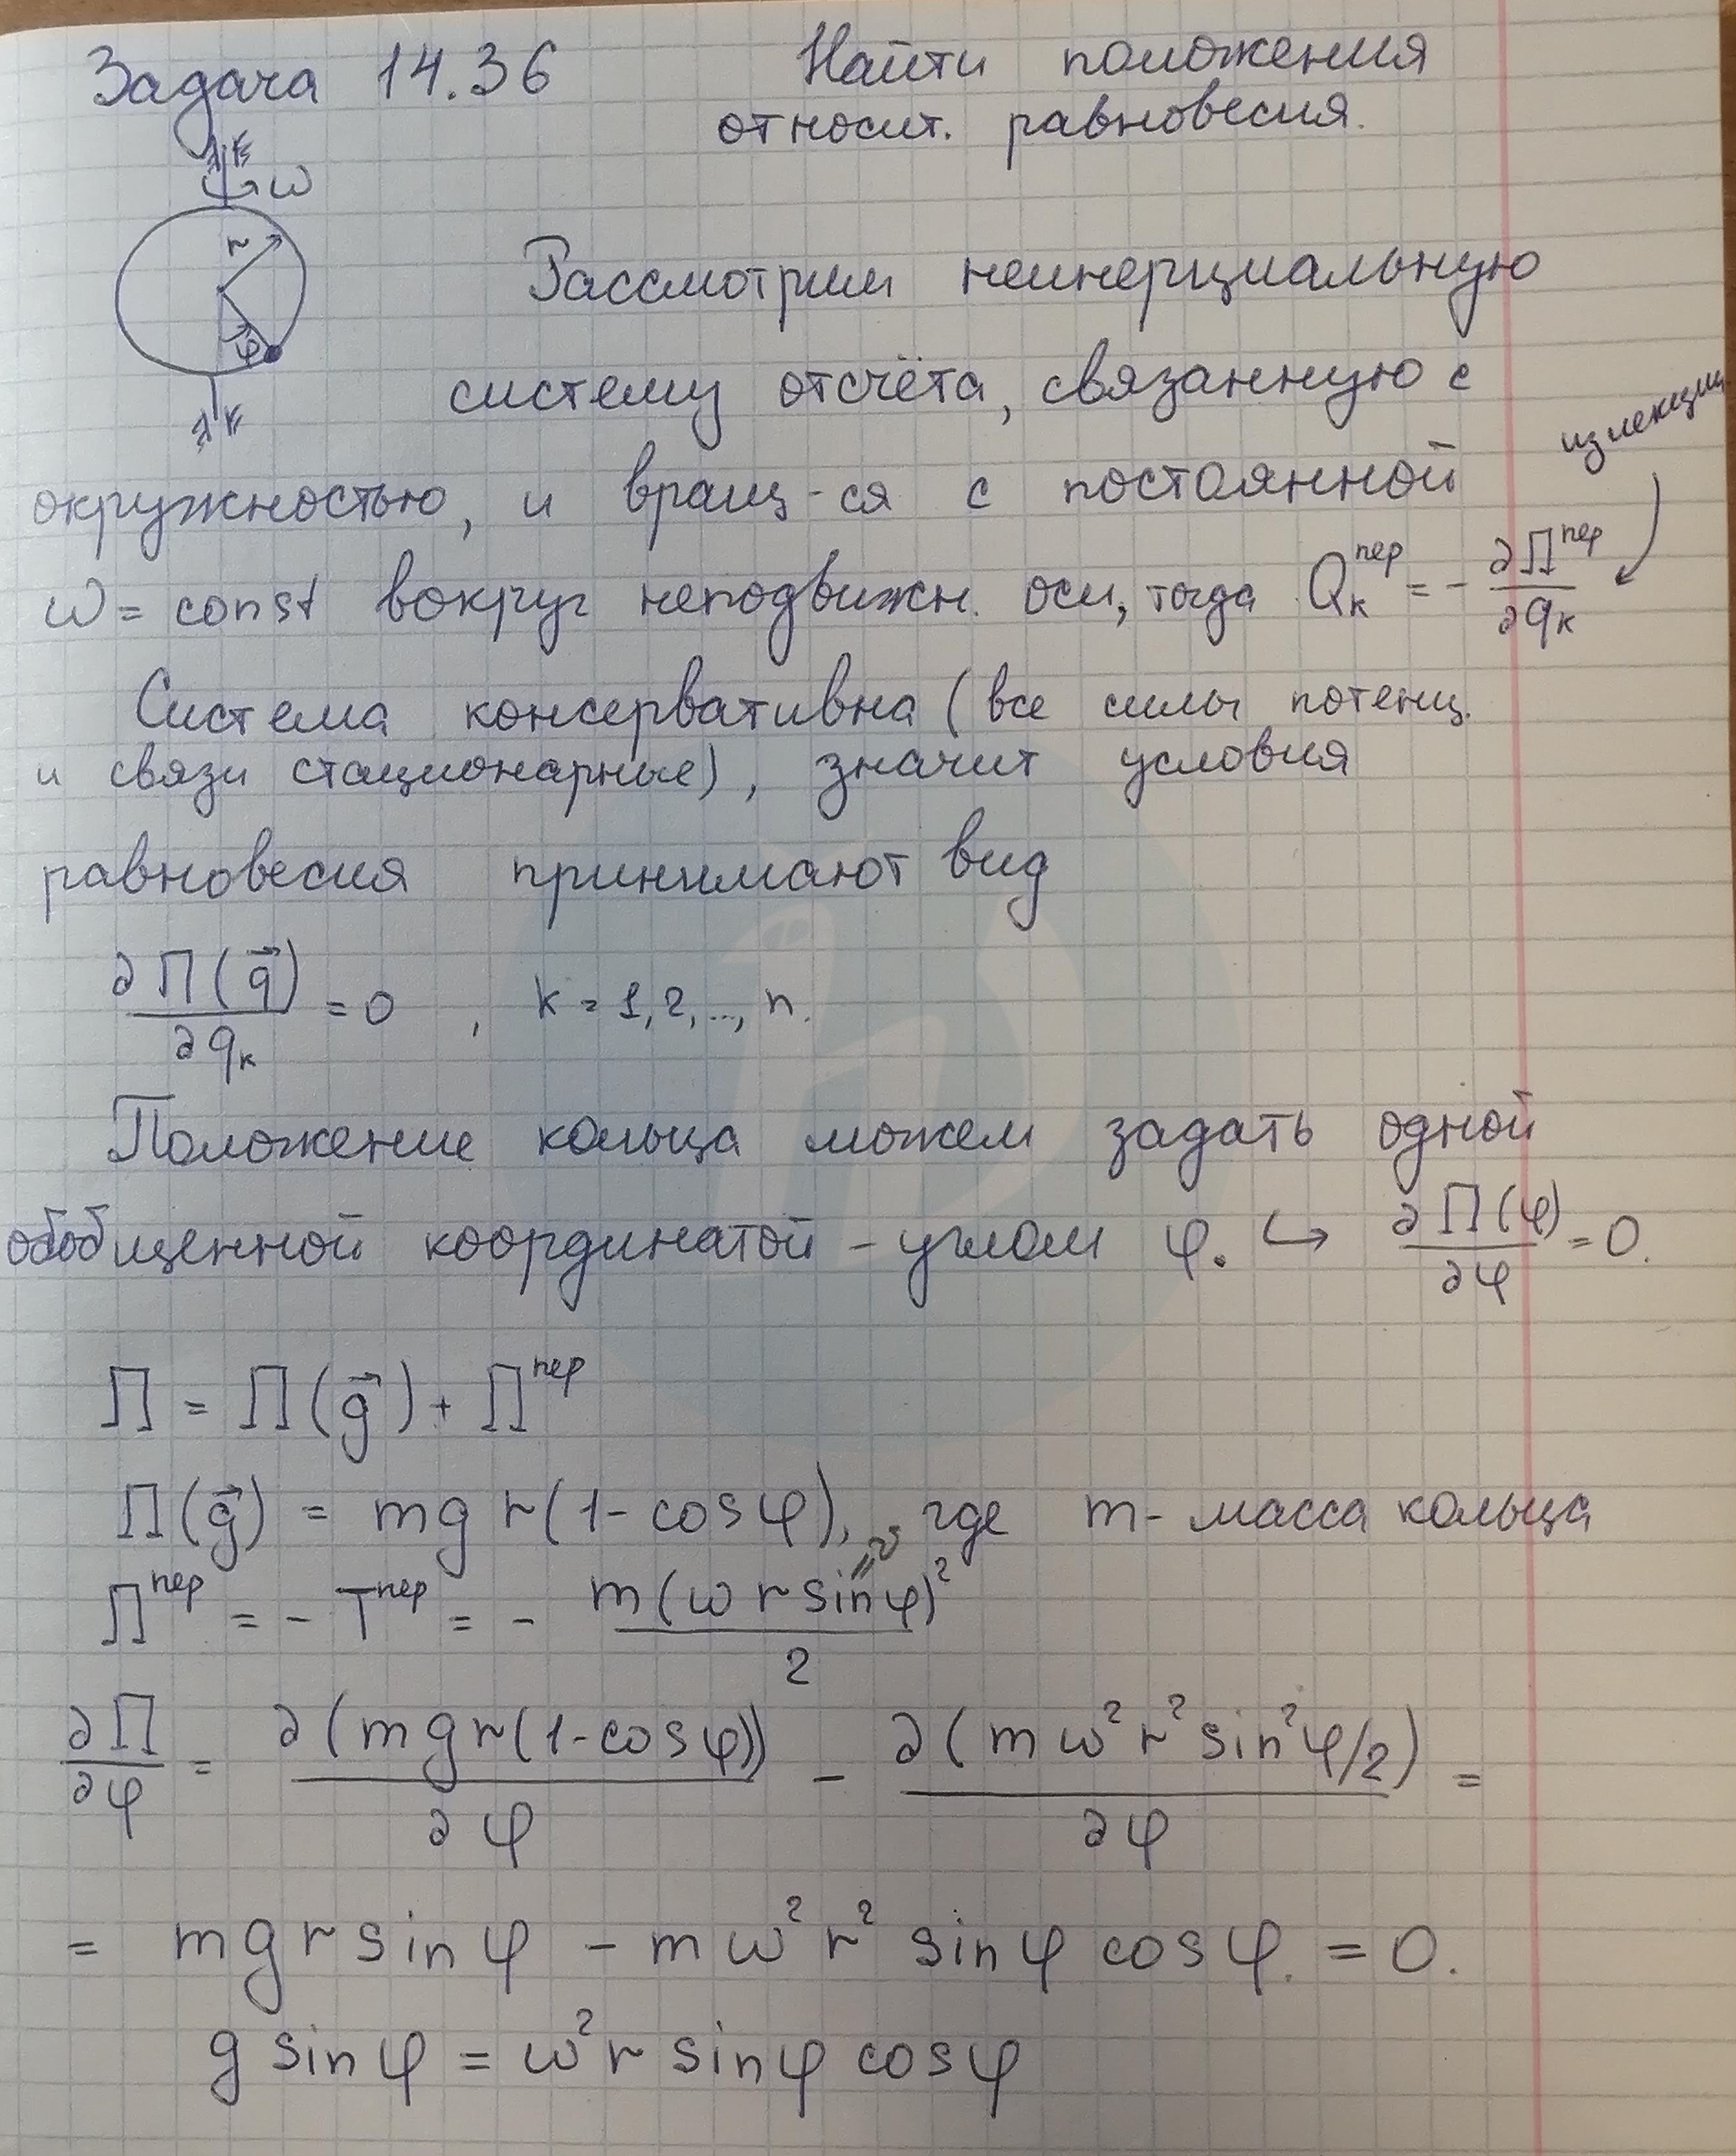 Задача 14.36
Найти положения
относит. равновесия.
ω
r
φ
Рассмотрим неинерциальную
систему отсчёта, связанную с
из лекции
окружностью, и вращ-ся с постоянной
ω = const вокруг неподвижн. оси, тогда Qₖᵖᵉʳ = - ∂Пᵖᵉʳ/∂qₖ
Система консервативна (все силы потенц.
и связи стационарные), значит условия
равновесия принимают вид
∂П(q⃗)/∂qₖ = 0 , k = 1, 2, ..., n.
Положение кольца можем задать одной
обобщенной координатой - углом φ. ↪ ∂П(φ)/∂φ = 0.
П = П(g⃗) + Пᵖᵉʳ
П(g⃗) = mgr(1-cosφ), где m - масса кольца
Пᵖᵉʳ = - Tᵖᵉʳ = - m(ωr sinφ)²/2
∂П/∂φ = ∂(mgr(1-cosφ))/∂φ - ∂(mω²r² sin²φ/2)/∂φ =
= mgr sinφ - mω²r² sinφ cosφ. = 0.
g sinφ = ω²r sinφ cosφ